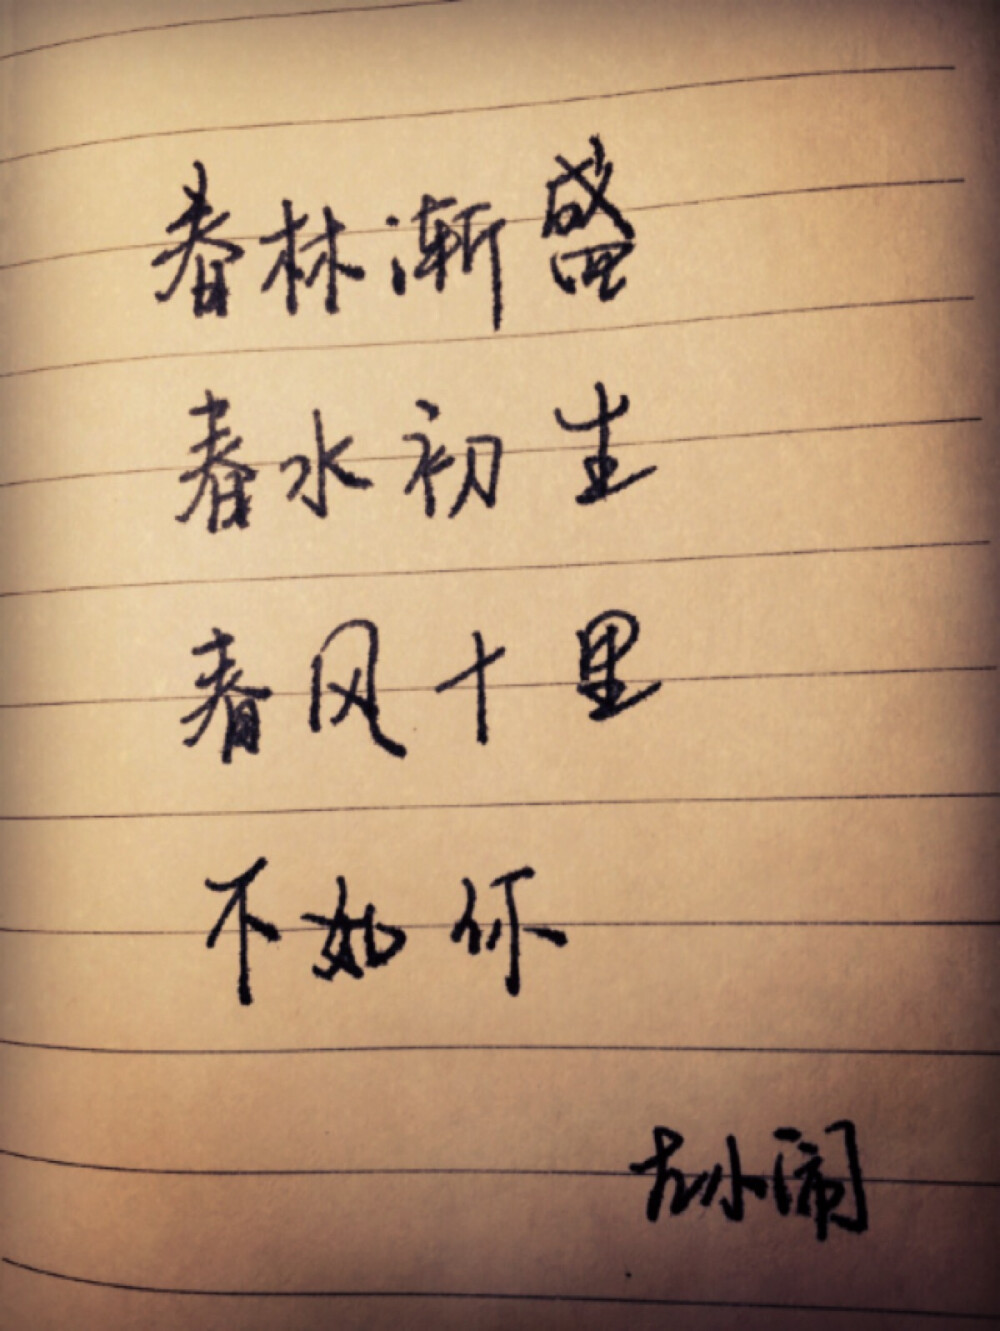 春林渐盛
春水初生
春风十里
不如你
左小闹